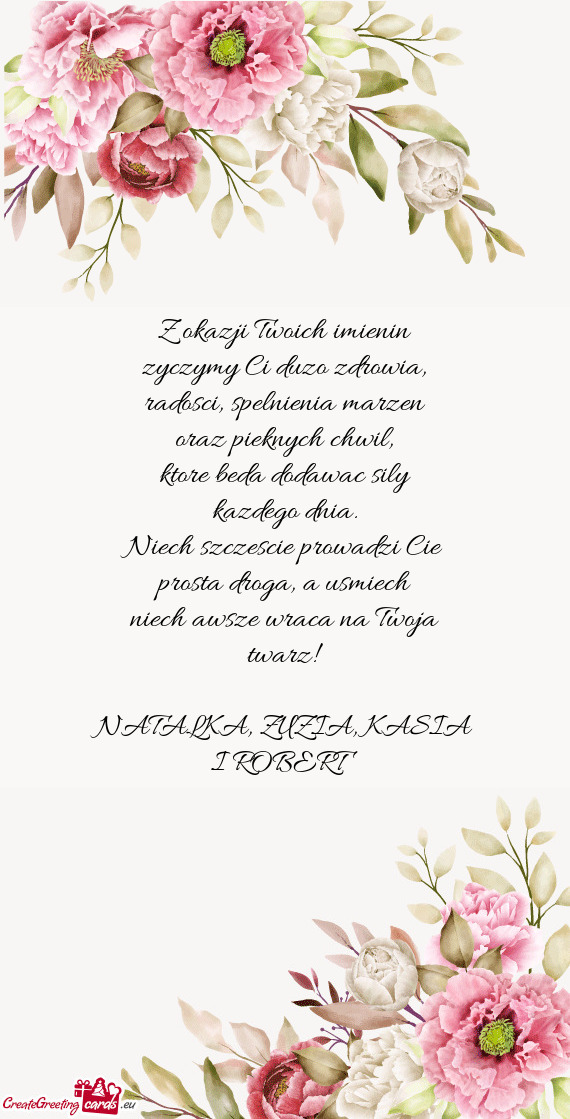 Z okazji Twoich imienin
zyczymy Ci duzo zdrowia,
radosci, spelnienia marzen
oraz pieknych chwil,
ktore beda dodawac sily
kazdego dnia.
Niech szczescie prowadzi Cie
prosta droga, a usmiech
niech awsze wraca na Twoja
twarz!
NATALKA, ZUZIA, KASIA
I ROBERT
CreateGreeting cards .eu